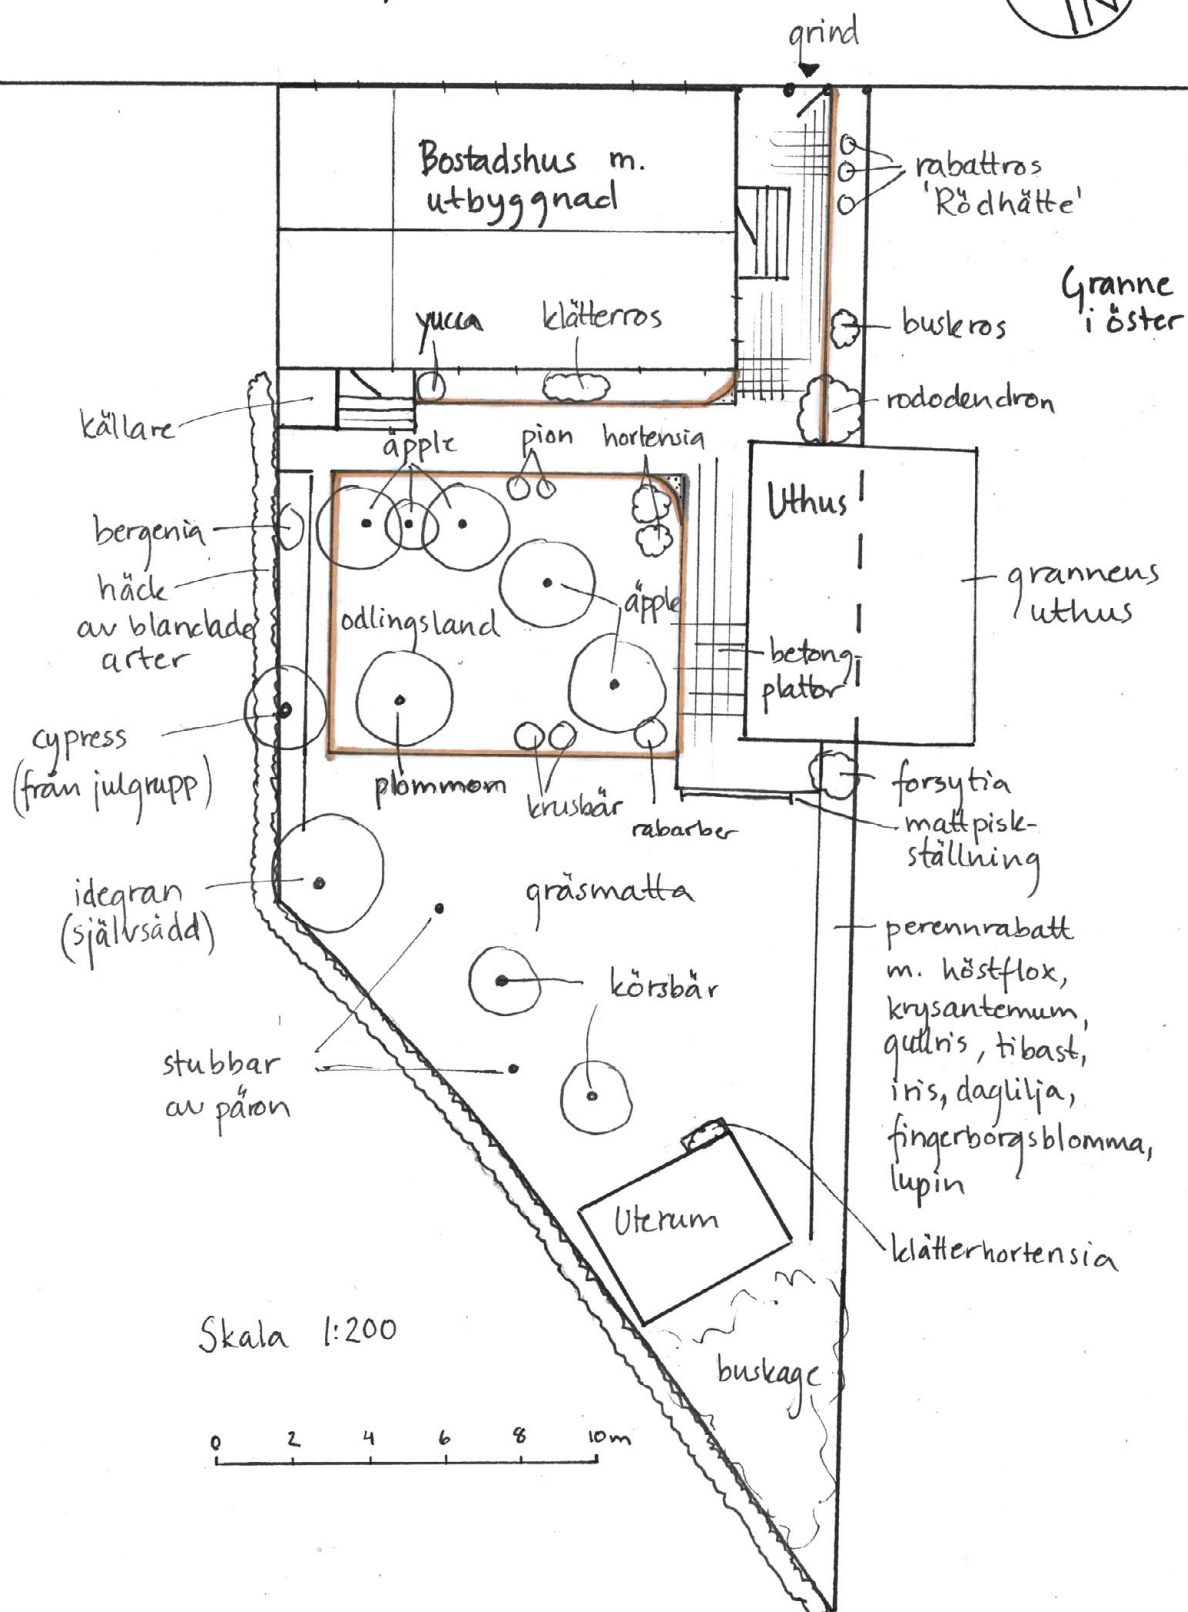 N
grind
Bostadshus m.
utbyggnad
rabattros
'Rödhätte'
Granne
i öster
yucca
klätterros
buskros
rododendron
källare
äpple
pion
hortensia
Uthus
bergenia
häck
av blandade
arter
odlingsland
äpple
grannens
uthus
betong-
plattor
cypress
(från julgrupp)
plommon
krusbär
rabarber
forsytia
mattpisk-
ställning
idegran
(självsådd)
gräsmatta
perennrabatt
m. höstflox,
krysantemum,
gullris, tibast,
iris, daglilja,
fingerborgsblomma,
lupin
körsbär
stubbar
av päron
Uterum
klätterhortensia
Skala 1:200
buskage
0 2 4 6 8 10m